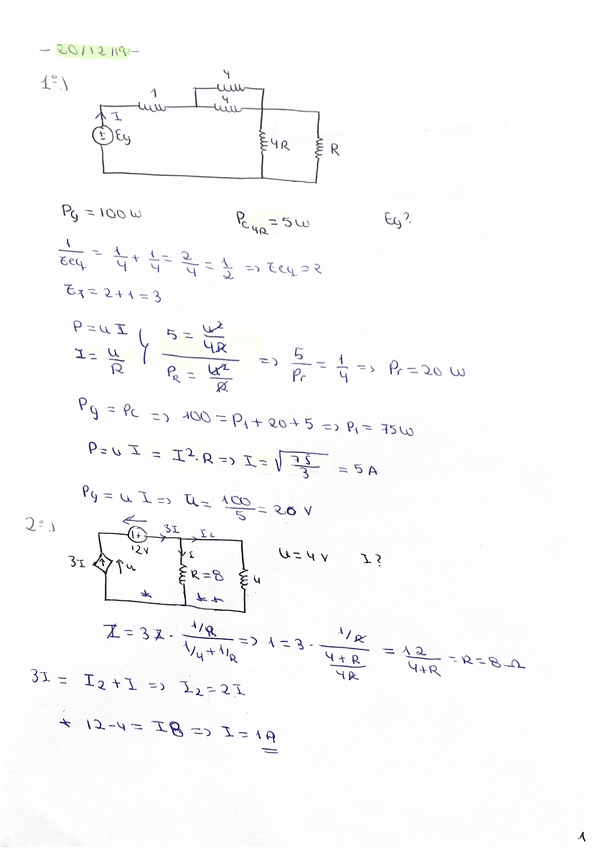 - 20/12/19 -
1º)
1
4
4
I
Eg
4R
R
Pg = 100 W    Pc4R = 5W    Eg?
1/Req = 1/4 + 1/4 = 2/4 = 1/2 => Req = 2
RT = 2+1 = 3
P = u I    5 = u²/4R
I = u/R    PR = u²/R    => 5/Pr = 1/4 => Pr = 20 W
Pg = Pc => 100 = P1 + 20 + 5 => P1 = 75W
P = u I = I²·R => I = √75/3 = 5A
Pg = u I => u = 100/5 = 20 V
2º)
3I    I2
12V
I
3I    u    R=8    4    u = 4V    I?
*    **
I = 3I · 1/R / 1/4 + 1/R => 1 = 3 · 1/R / 4+R/4R = 12/4+R = R = 8 Ω
3I = I2 + I => I2 = 2I
* 12-4 = I8 => I = 1A
1